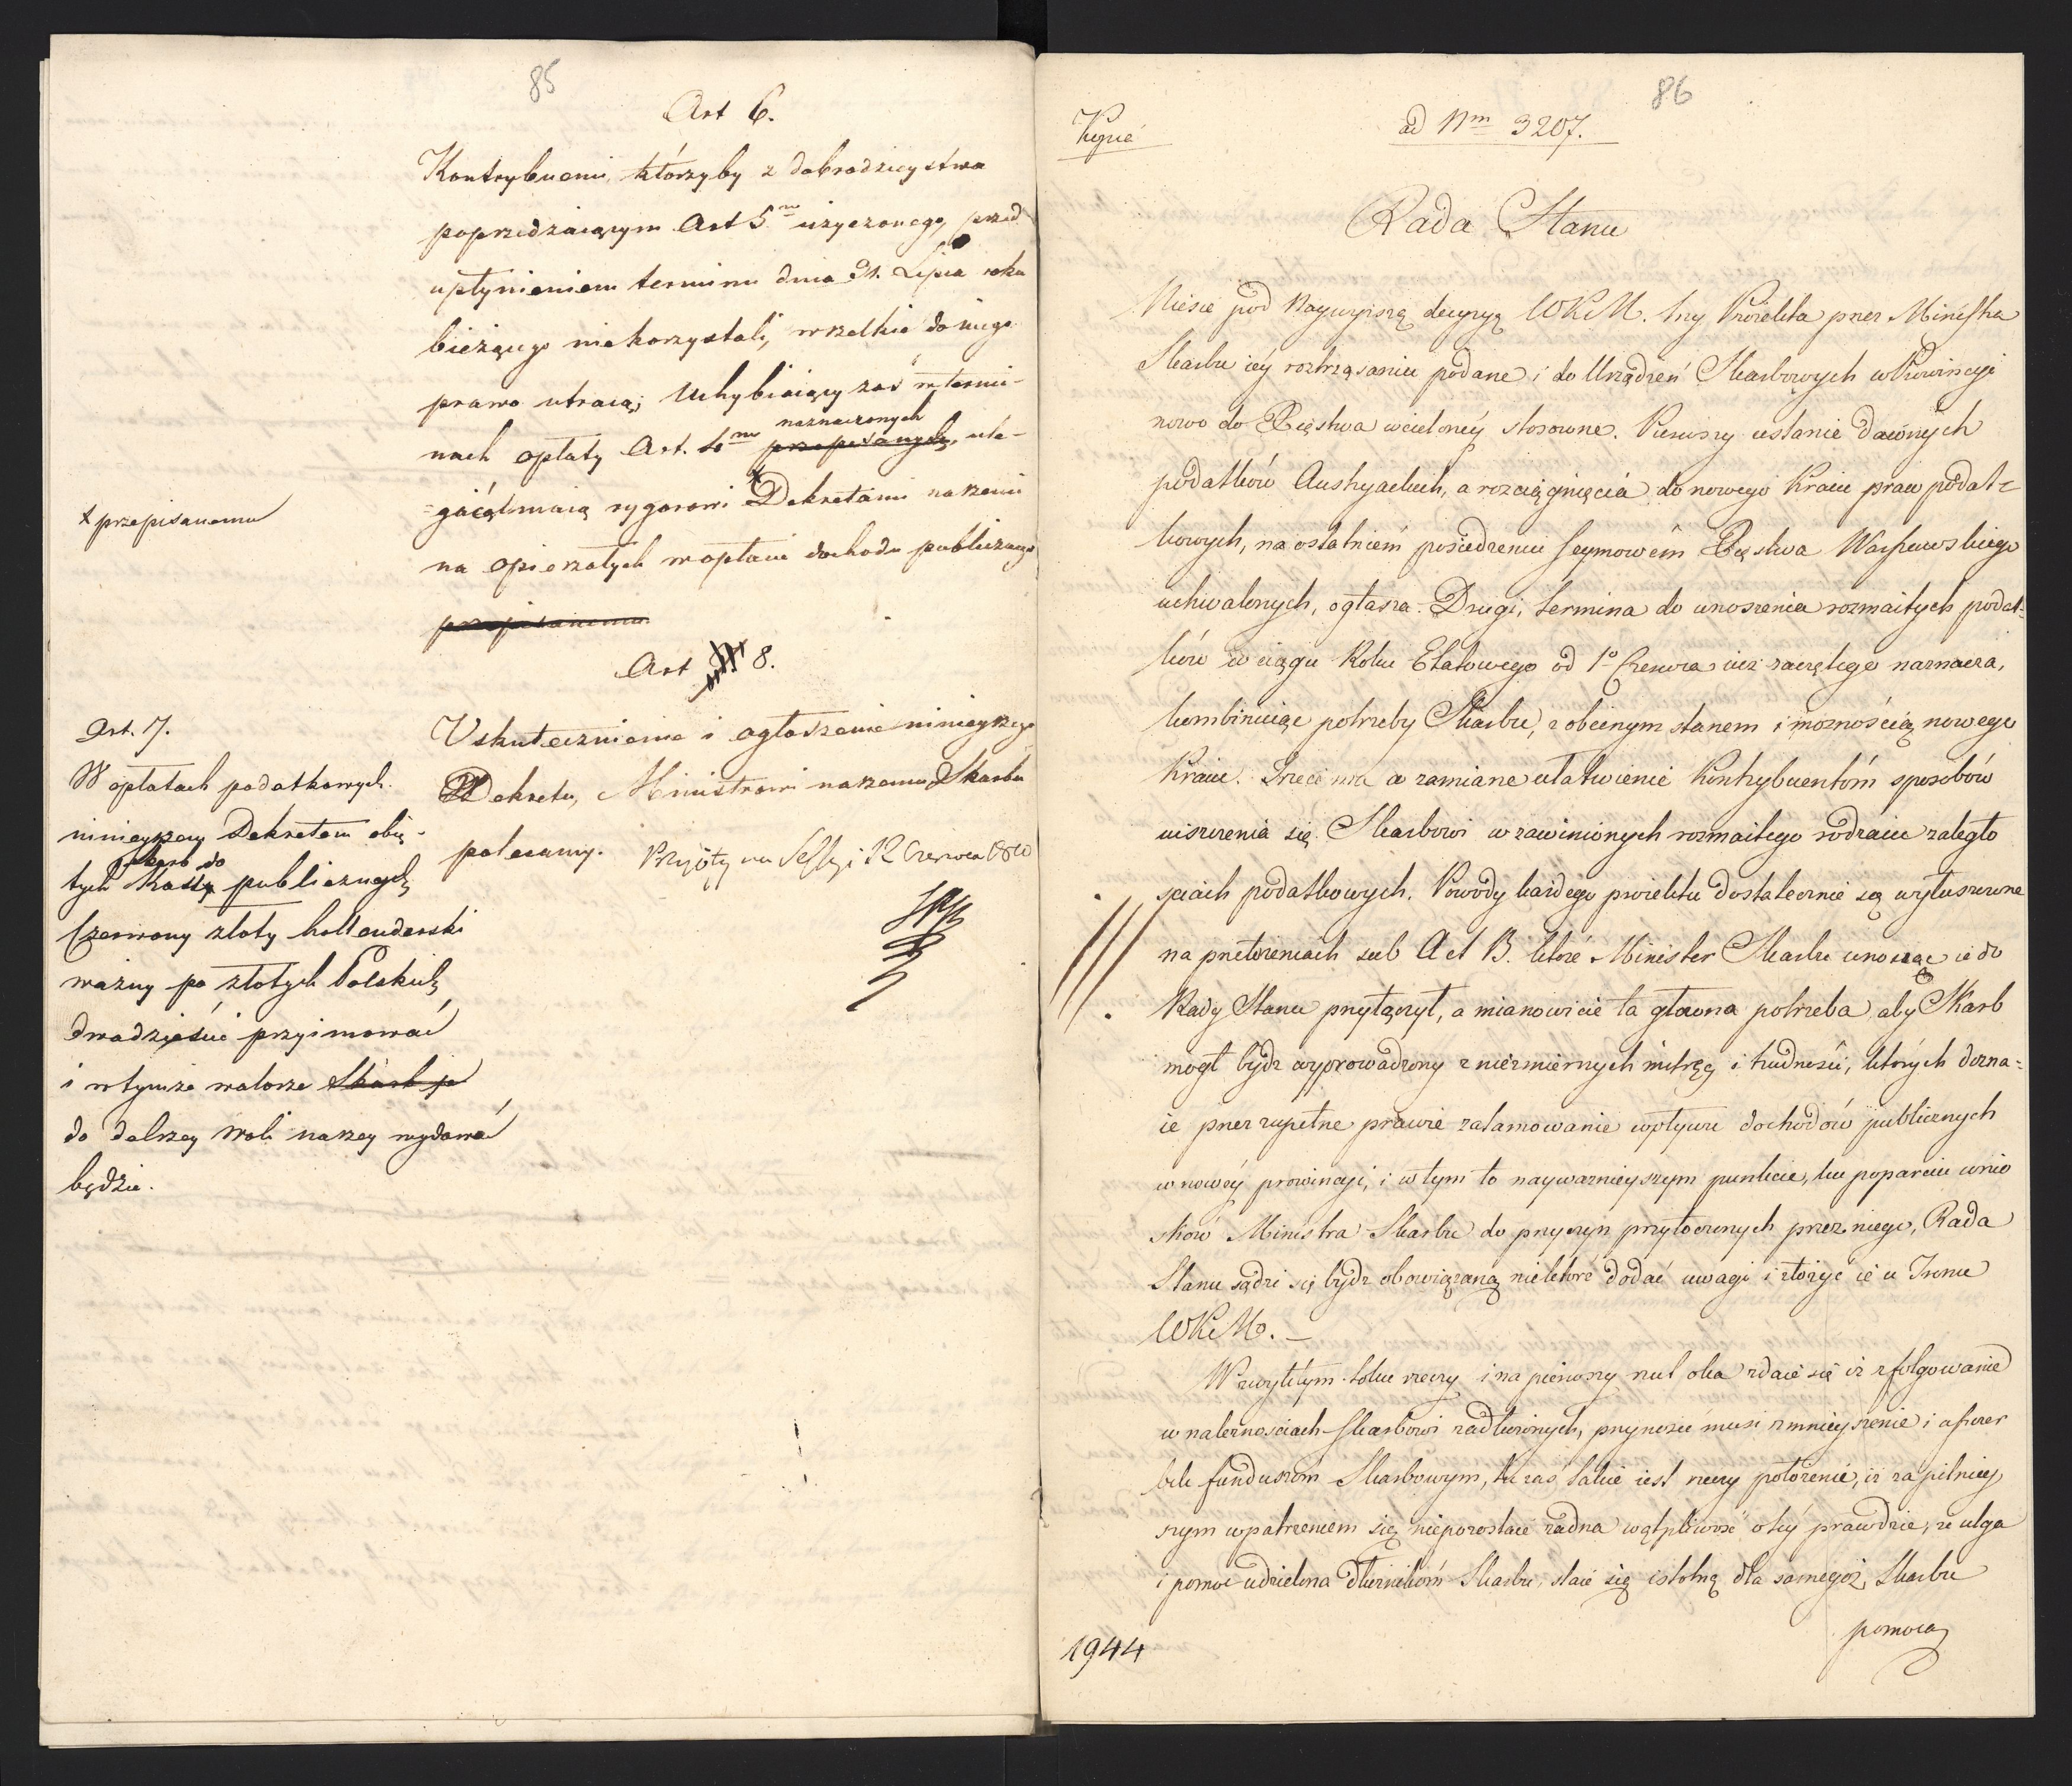 85
Art 6.
Kontrybuenci, którzyby z dobrodzieystwa
poprzedzaiącym Art 5m użyczonego, przed
upłynieniem terminu dnia 31. Lipca roku
bieżącego niekorzystali, wszelkie do niego
prawo utracą; Uchybiaiący zaś w termi-
naznaczonych
nach opłaty Art. 4m przepisanych, ule-
=gaiąć maią rygorowi Dekretami naszemi
x przepisanemu
na opieszałych w opłacie dochodu publicznego
przepisanemu
Art 8.
Uskutecznienie i ogłoszenie ninieyszego
Dekretu, Ministrowi naszemu Skarbu
polecamy. Przyięty na Sessyi 12 Czerwca 1810
Art. 7.
W opłatach podatkowych
ninieyszem Dekretem obię-
Skarb do
tych Kass publicznych,
Czerwony złoty hollenderski
ważny po złotych Polskich
dwadzieście przyimować
i w tymże walorze Skarb je
do dalszey woli naszey wydawać
będzie.
86
Kopia
ad Nm 3207.
Rada Stanu
Niesie pod Naywyższą decyzyą WKM. trzy Proiekta przez Ministra
Skarbu iéy roztrząsaniu podane i do Urządzeń Skarbowych w Prowincyi
nowo do Xięstwa wcielonéy stosowne. Pierwszy ustanie dawnych
podatków Austryackich, a rozciągnięcia do nowego Kraiu praw podat=
kowych, na ostatniém posiedzeniu seymowém Xięstwa Warszawskiego
uchwalonych, ogłasza. Drugi, termina do wnoszenia rozmaitych podat-
ków w ciągu Roku Etatowego od 1o Czerwca iuż zaczętego naznacza,
kombinuiąc potrzeby Skarbu, z obecnym stanem i możnością nowego
Kraiu. Trzeci ma za zamiar ułatwienie Kontrybuentóm sposobów
uiszczenia się Skarbowi w zawinionych rozmaitego rodzaiu zaległo
ściach podatkowych. Powody każdego proiektu dostatecznie są wyłuszczone
na przełożeniach sub A et B. które Minister Skarbu wnosząc ie do
Rady Stanu przyłączył, a mianowicie ta głowna potrzeba, aby Skarb
mogł bydź wyprowadzony z niezmiernych mitręg i trudności, których dozna=
ie przez zupełne prawie zatamowanie wpływu dochodów publicznych
w nowéy prowincyi, i w tym to nayważnieyszym punkcie, ku poparciu wnio
sków Ministra Skarbu do przyczyn przytoczonych przez niego, Rada
Stanu sądzi się bydź obowiązaną niektóre dodać uwagi i złożyć ie u Tronu
WKM. –
W zwykłym toku rzeczy i na pierwszy rzut oka zdaie się iż zfolgowanie
w należnościach Skarbowi zadłużonych, przynosić musi zmnieyszenie i uszczer
bek funduszóm Skarbowym, tu zaś takie iest rzeczy położenie, iż za pilniey
szym wpatrzeniem się, niepozostaie żadna wątpliwość o téy prawdzie, że ulga
i pomoc udzielona dłużnikóm Skarbu, staie się istotną dla samegoż Skarbu
pomocą
1944